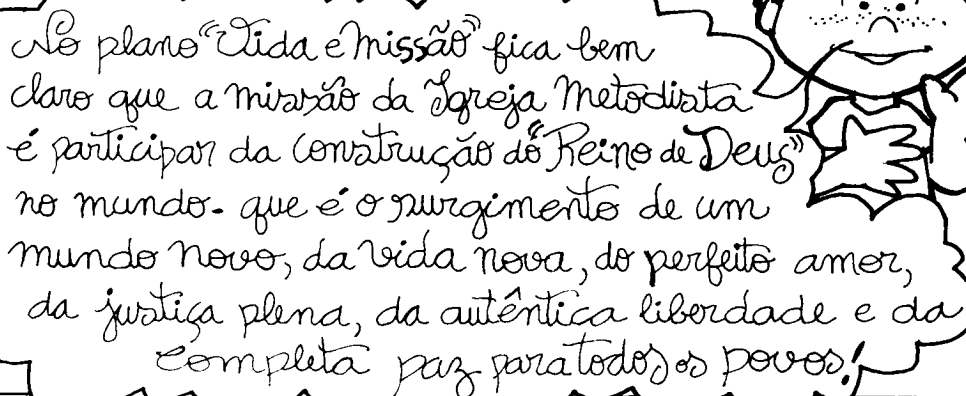 No plano "Vida e Missão" fica bem
claro que a missão da Igreja Metodista
é participar da construção do "Reino de Deus"
no mundo. que é o surgimento de um
mundo novo, da vida nova, do perfeito amor,
da justiça plena, da autêntica liberdade e da
completa paz para todos os povos!